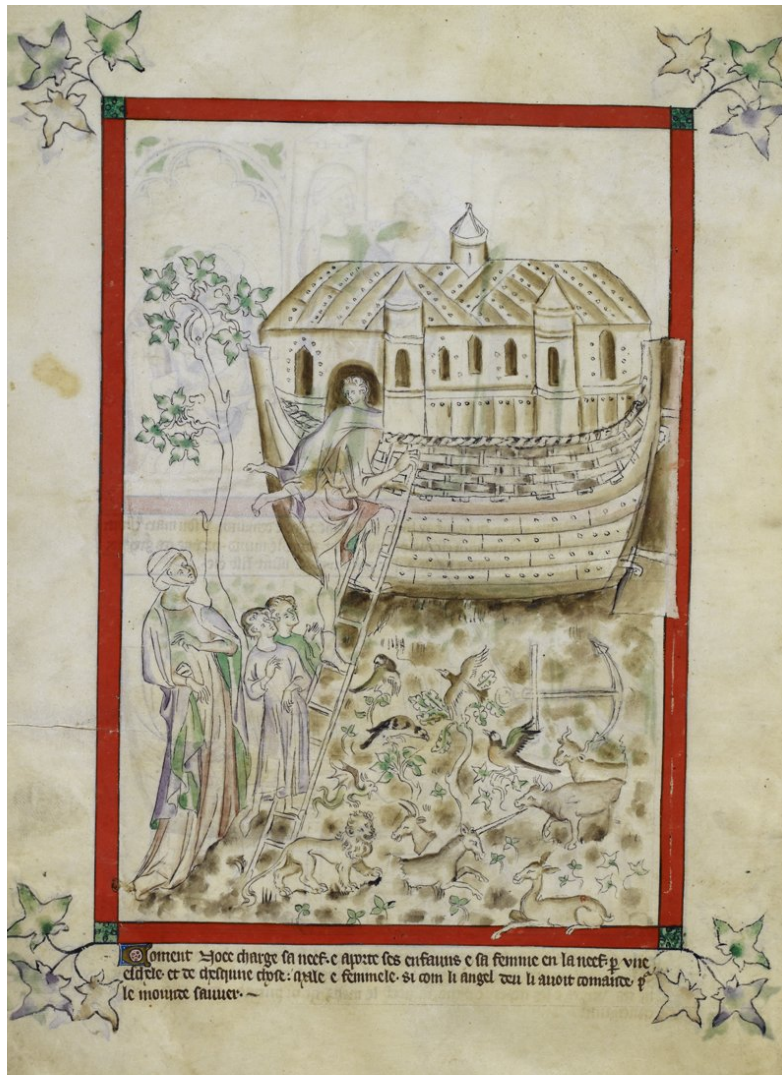 Coment Noee charge sa neef. e aporte ses enfauns e sa femme en la neef. p vne
eschele. et de chescune chose: male e femmele. si com li angel deu li auoit comaunde. p
le mounde sauuer. ~